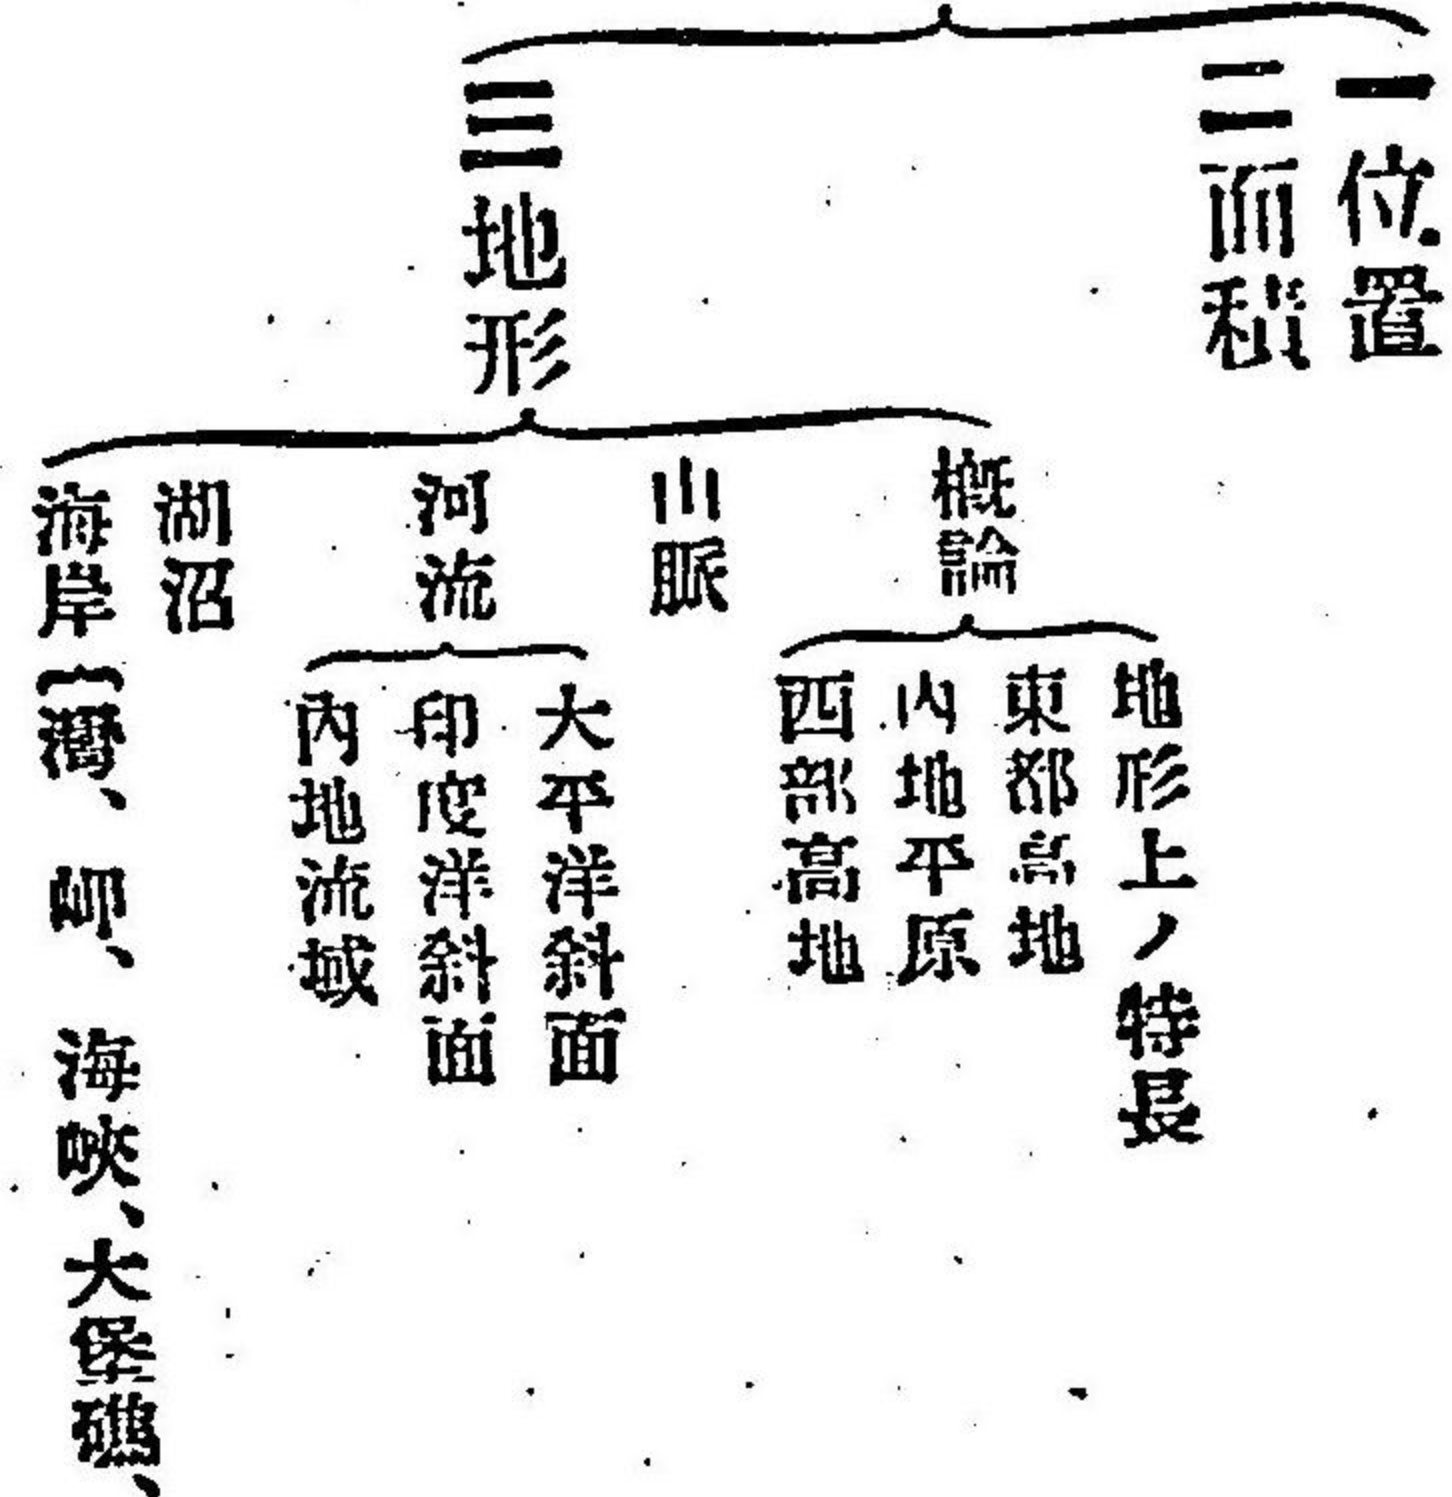 一位置
二面積
三地形
概論
地形上ノ特長
東部高地
內地平原
西部高地
山脈
河流
大平洋斜面
印度洋斜面
內地流域
湖沼
海岸{灣、岬、海峽、大堡礁、